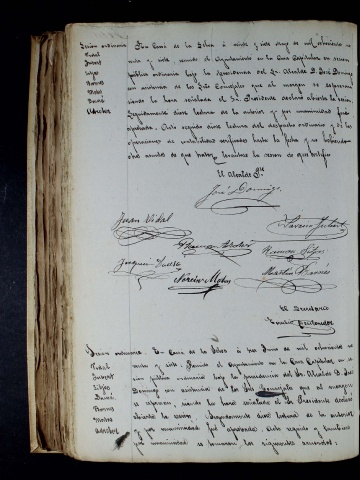 Sesión ordinaria
Vidal
Jubert
Sitjes
Barnés
Mates
Dausá
Adroher
En Casa de la Selva á veinte y siete Mayo de mil ochocientos no-
venta y siete, reunido el Ayuntamiento en la Casa Capitular en sesion
pública ordinaria bajo la Presidencia del Sr. Alcalde D. José Domingo
con asistencia de los Sres Concejales que al margen se espresan,
siendo la hora señalada el Sr. Presidente declaró abierta la sesion.
Seguidamente dióse lectura de la anterior y por unanimidad fué
aprobada. Acto seguido dióse lectura del despacho ordinario y de las
operaciones de contabilidad verificadas hasta la fecha y no habiendo
otro asunto de que tratar, levantóse la sesion de que certifico.
El Alcalde Pte
José Domingo
Juan Vidal
Narciso Mates
Martin Barnés
El Secretario
Sesion ordinaria.
Vidal
Jubert
Sitjes
Dausá
Barnés
Mates
Adroher
En Casa de la Selva á tres Junio de mil ochocientos no-
venta y siete. Reunido el Ayuntamiento en la Casa Capitular en se-
sion pública ordinaria bajo la presidencia del Sr. Alcalde D. José
Domingo con asistencia de los Sres Concejales que al margen
se espresan, siendo la hora señalada el Sr. Presidente declaró
abierta la sesion. Seguidamente dióse lectura de la anterior
y por unanimidad fué aprobada. Acto seguido y tambien
por unanimidad se tomaron los siguientes acuerdos: